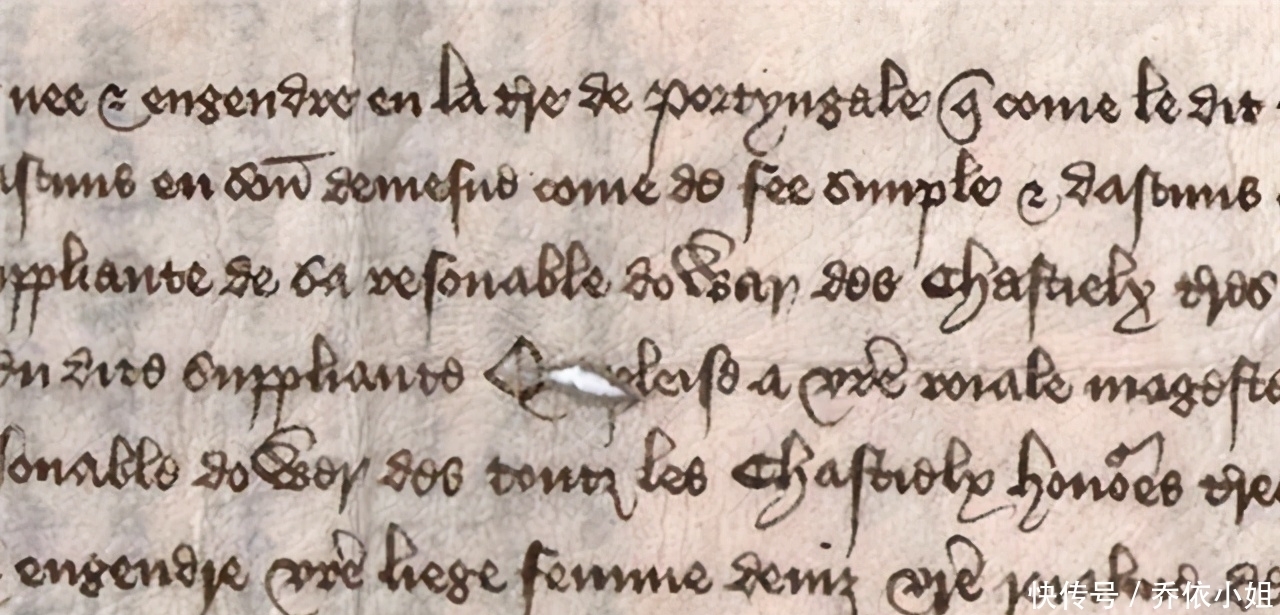 nee ⁊ engendre en la t're de Portyngale q̄ come le dit
en son̄ demesne come de fee simple ⁊ dascuns
suppliante de sa resonable dowar des Chastielx t'res
du dite suppliante pleise a vr̄e roiale mageste
sonable dower des toutz les Chastielx honōes t're
engendre vr̄e liege femme deinz vr̄e
快传号 / 乔依小姐